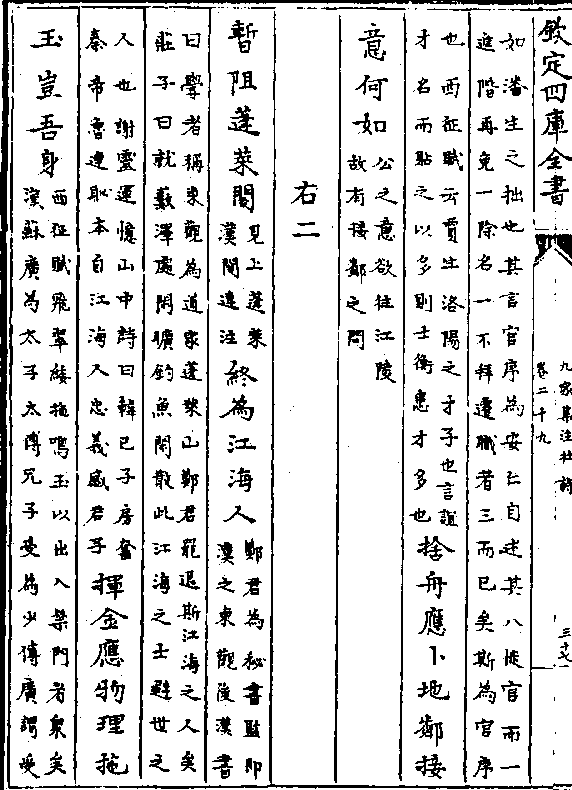 欽定四庫全書
九家集注杜詩
卷二十九
如潘生之拙也其言官序為安仁自述其八徙官而一
進階再免一除名一不拜遷職者三而已矣斯為官序
也西征賦云賈生洛陽之才子也言誼
才名而點之以多則士衡患才多也
捨舟應卜地鄰接
意何如
公之意欲往江陵
故有接鄰之問
右二
暫阻蓬萊閣
見上蓬萊
漢閣邉注
終為江海人
鄭君為秘書監即
漢之東觀後漢書
曰學者稱東觀為道家蓬萊山鄭君罷退斯江海之人矣
莊子曰就藪澤處閒曠釣魚閒散此江海之士避世之
人也謝靈運憶山中詩曰韓亡子房奮
秦帝魯連恥本自江海人忠義感君子
揮金應物理拖
玉豈吾身
西征賦飛翠緌拖鳴玉以出入禁門者衆矣
漢蘇廣為太子太傅兄子受為少傅廣謂受